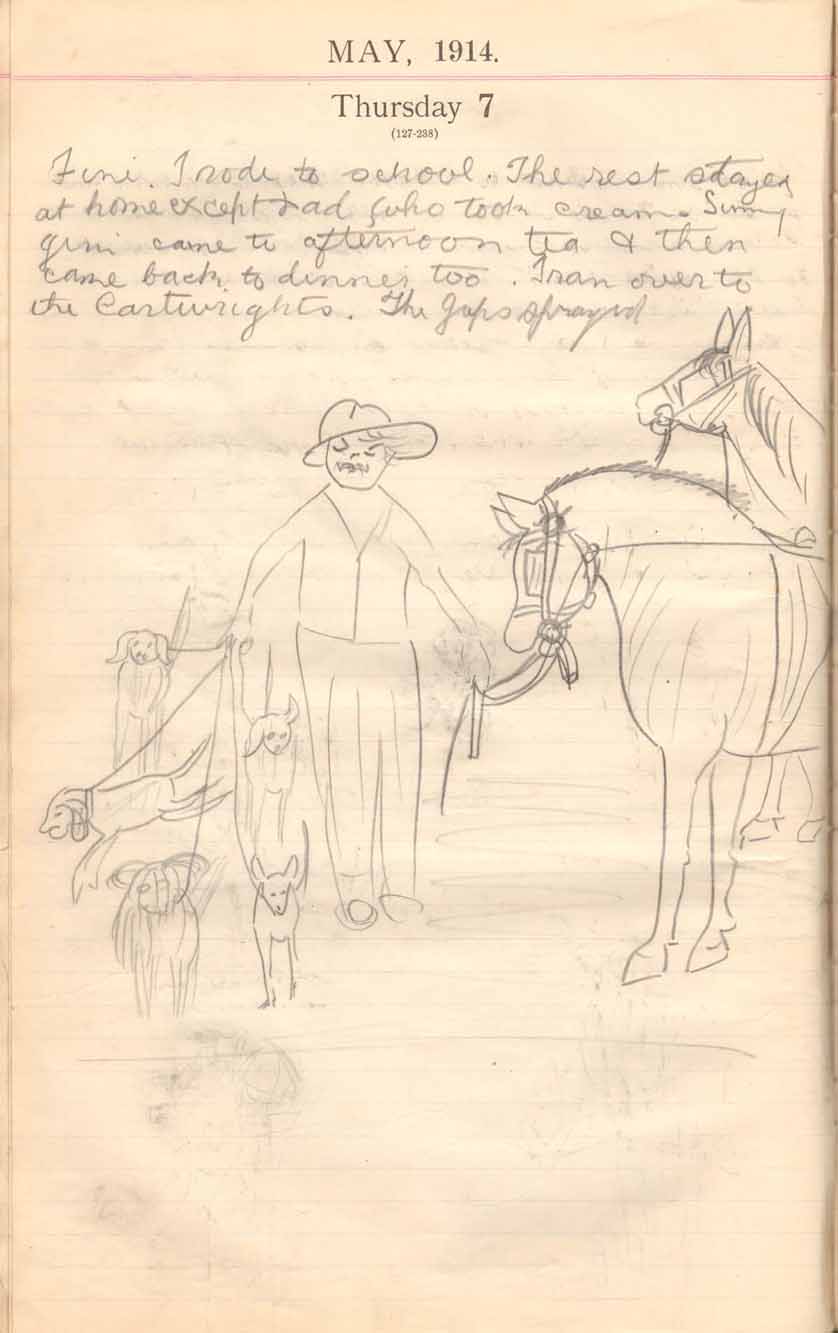 MAY, 1914.
Thursday 7
(127-238)
Fine. I rode to school. The rest stayed
at home except Dad who took cream. Sunny
Jim came to afternoon tea & then
came back to dinner too. I ran over to
the Cartwrights. The Japs sprayed